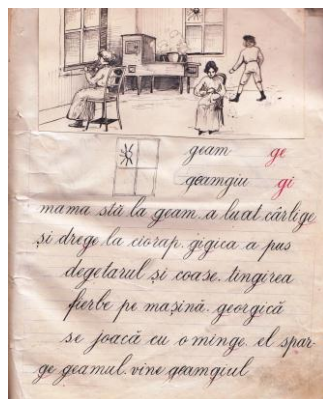 geam ge
geamgiu gi
mama stă la geam. a luat cârlige
și drege la ciorap. gigica a pus
degetarul și coase. tingirea
fierbe pe mașină. georgică
se joacă cu o minge. el spar-
ge geamul. vine geamgiul